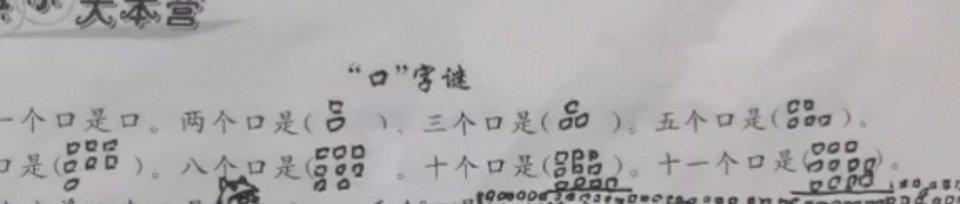 大本营
“口”字谜
一个口是口。两个口是( )。三个口是( )。五个口是( )。
口是( )。八个口是( 。十个口是( )。十一个口是( )。